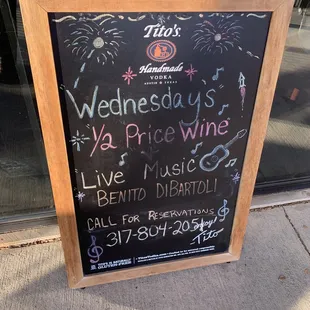 Tito's
Handmade
VODKA
AUSTIN TEXAS
Wednesday's
1/2 Price Wine
Live Music
BENITO DIBARTOLI
CALL FOR RESERVATIONS
317-804-205
Tito